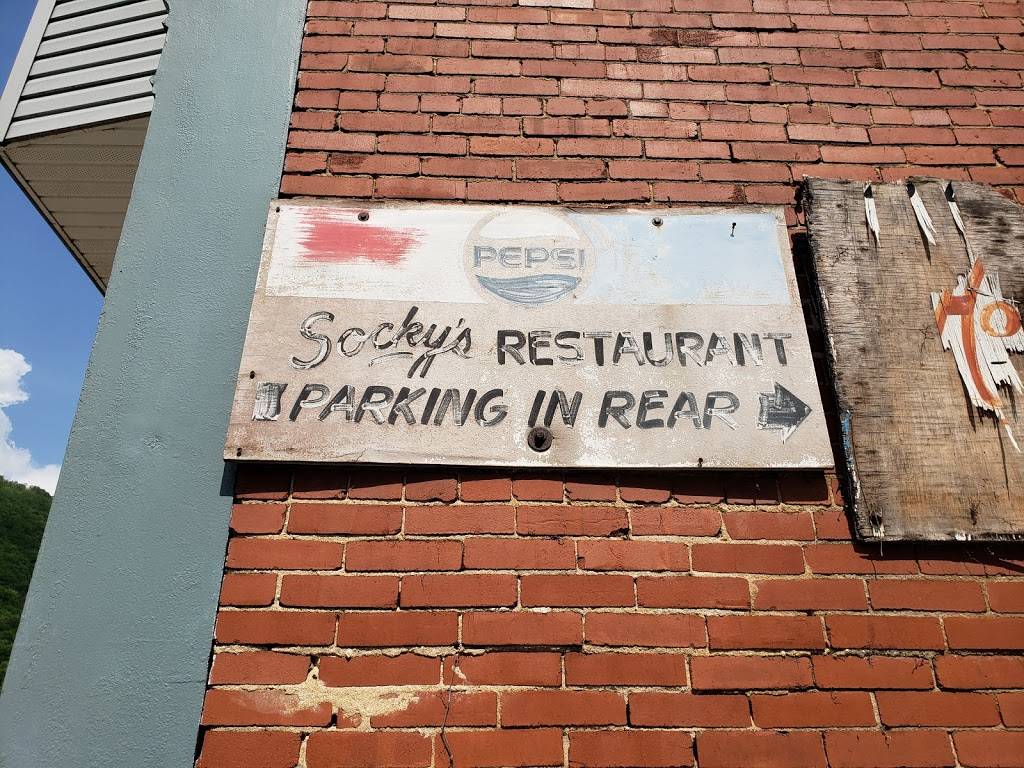 PEPSI
Socky's RESTAURANT
PARKING IN REAR